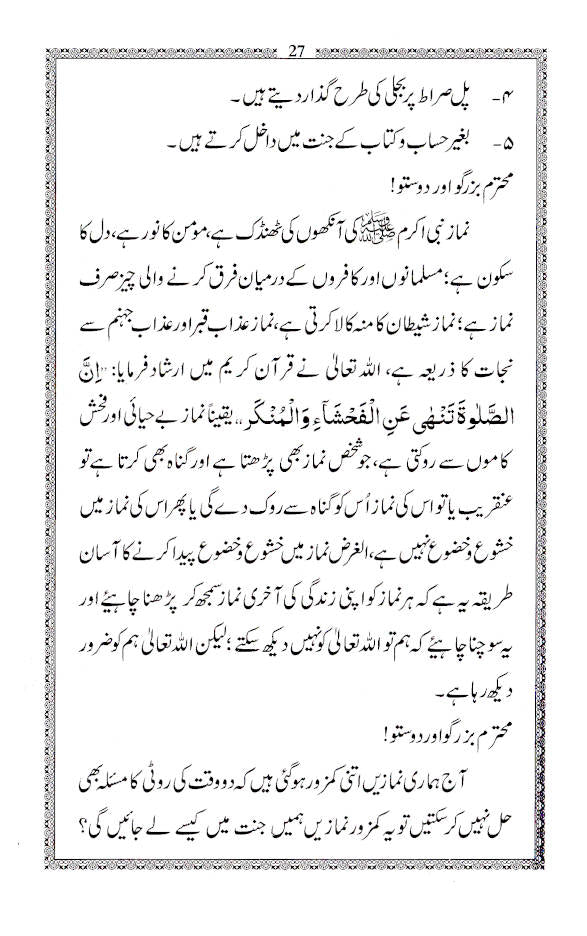 27
۴- پل صراط پر بجلی کی طرح گذار دیتے ہیں۔
۵- بغیر حساب و کتاب کے جنت میں داخل کرتے ہیں۔
محترم بزرگو اور دوستو!
نماز نبی اکرم ﷺ کی آنکھوں کی ٹھنڈک ہے، مؤمن کا نور ہے، دل کا
سکون ہے؛ مسلمانوں اور کافروں کے درمیان فرق کرنے والی چیز صرف
نماز ہے؛ نماز شیطان کا منہ کالا کرتی ہے، نماز عذاب قبر اور عذاب جہنم سے
نجات کا ذریعہ ہے، اللہ تعالیٰ نے قرآن کریم میں ارشاد فرمایا: ”اِنَّ
الصَّلٰوةَ تَنْهٰى عَنِ الْفَحْشَآءِ وَالْمُنْكَرِ“ یقیناً نماز بے حیائی اور فحش
کاموں سے روکتی ہے، جو شخص نماز بھی پڑھتا ہے اور گناہ بھی کرتا ہے تو
عنقریب یا تو اس کی نماز اُس کو گناہ سے روک دے گی یا پھر اس کی نماز میں
خشوع و خضوع نہیں ہے، الغرض نماز میں خشوع و خضوع پیدا کرنے کا آسان
طریقہ یہ ہے کہ ہر نماز کو اپنی زندگی کی آخری نماز سمجھ کر پڑھنا چاہئے اور
یہ سوچنا چاہئے کہ ہم تو اللہ تعالیٰ کو نہیں دیکھ سکتے؛ لیکن اللہ تعالیٰ ہم کو ضرور
دیکھ رہا ہے۔
محترم بزرگو اور دوستو!
آج ہماری نمازیں اتنی کمزور ہو گئی ہیں کہ دو وقت کی روٹی کا مسئلہ بھی
حل نہیں کر سکتیں تو یہ کمزور نمازیں ہمیں جنت میں کیسے لے جائیں گی؟